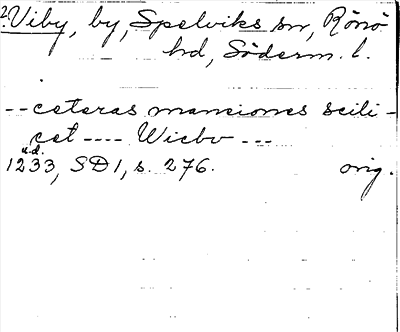 2 Viby, by, Spelviks sn, Rönö
hd, Söderm. l.
-- ceteras mansiones scili-
cet ---- Wicbo ---
u.d.
1233, SD 1, s. 276. orig.